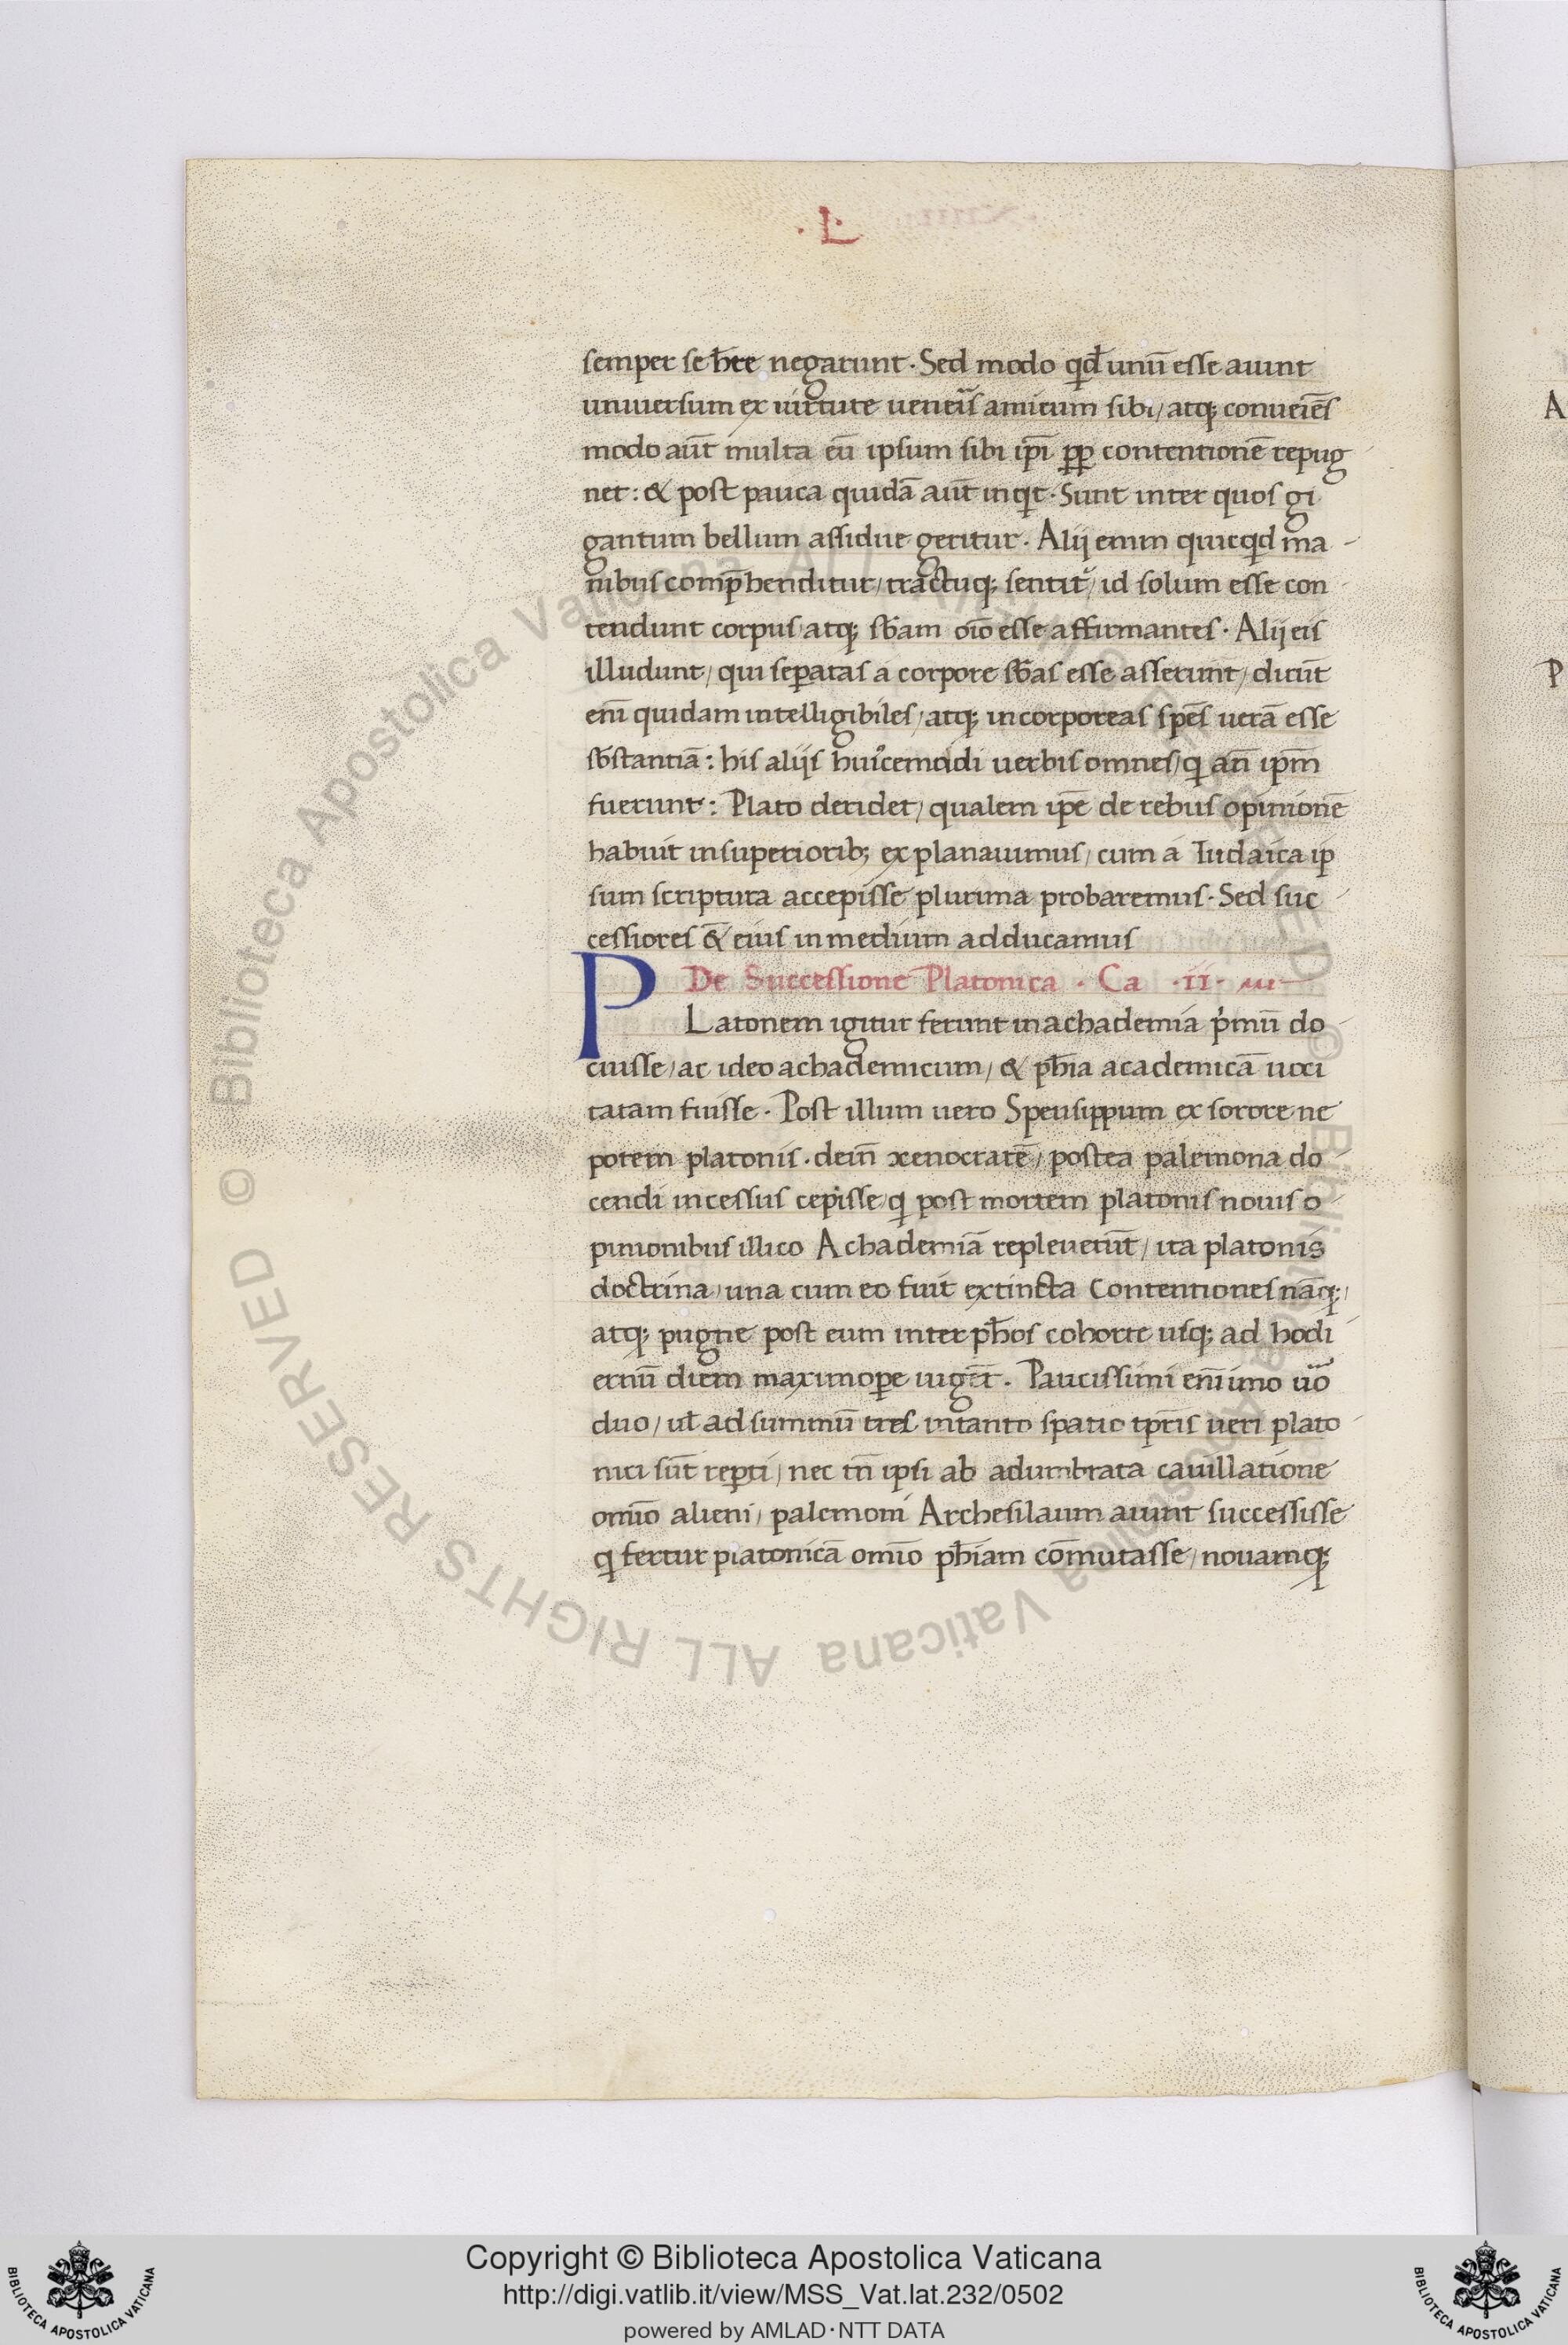 · L ·
semper se hr̄e negarunt · Sed modo qđ unū esse aiunt
universum ex uirtute ueneris amicum sibi / atq; conueīes
modo aūt multa eū ipsum sibi ip̄i pp contentionē repug
net : & post pauca quidā aūt inqt · Sunt inter quos gi
gantum bellum assidue geritur · Alij enim quicqd ma -
nibus comp̄henditur / tractuq; sentit᷑ / id solum esse con -
tendunt corpus atq; sƀam oīo esse affirmantes · Alij eis
illudunt / qui seperatas a corpore sƀas esse asserunt / dicūt
enī quidam intelligibiles / atq; incorporeas spēs uerā esse
sƀstantiā : his alijs huiꝰcemodi uerbis omnes / q an̄ ip̄m
fuerunt : Plato deridet / qualem ip̄e de rebus opinionē
habuit in superiorib; explanauimus / cum a Iudaica ip
sum scriptura accepisse plurima probaremus · Sed suc -
cessiores & eius in medium adducamus
De Successione Platonica · Ca · II ·
PLatonem igitur ferunt in achademia p̍mū do -
cuisse / ac ideo achademicum / & ph̄ia academicā uoci
tatam fuisse · Post illum uero Speusippum ex sorore ne
potem platonis · dein̄ xenocratē / postea palemona do -
cendi incessus cepisse / q post mortem platonis nouis o -
pinionibus illico Achademiā repleuerūt / ita platonis
doctrina / una cum eo fuit extincta Contentiones nāq; /
atq; pugne post eum inter ph̄os cohorte usq; ad hodi -
ernū diem maximope uigēt · Paucissimi enī imo ūo
duo / uł ad summū tres in tanto spatio tp̄ris ueri plato -
nici sūt repti / nec tn̄ ipsi ab adumbrata cauillatione
omīo alieni / palemoni Archesilaum aiunt successisse
q fertur platonicā omīo ph̄iam cōmutasse / nouamq;
A
P
Copyright © Biblioteca Apostolica Vaticana
http://digi.vatlib.it/view/MSS_Vat.lat.232/0502
powered by AMLAD·NTT DATA
BIBLIOTECA APOSTOLICA VATICANA
BIBLIOTECA APOSTOLICA VATICANA
© Biblioteca Apostolica Vaticana ALL RIGHTS RESERVED © Biblioteca Apostolica Vaticana ALL RIGHTS RESERVED